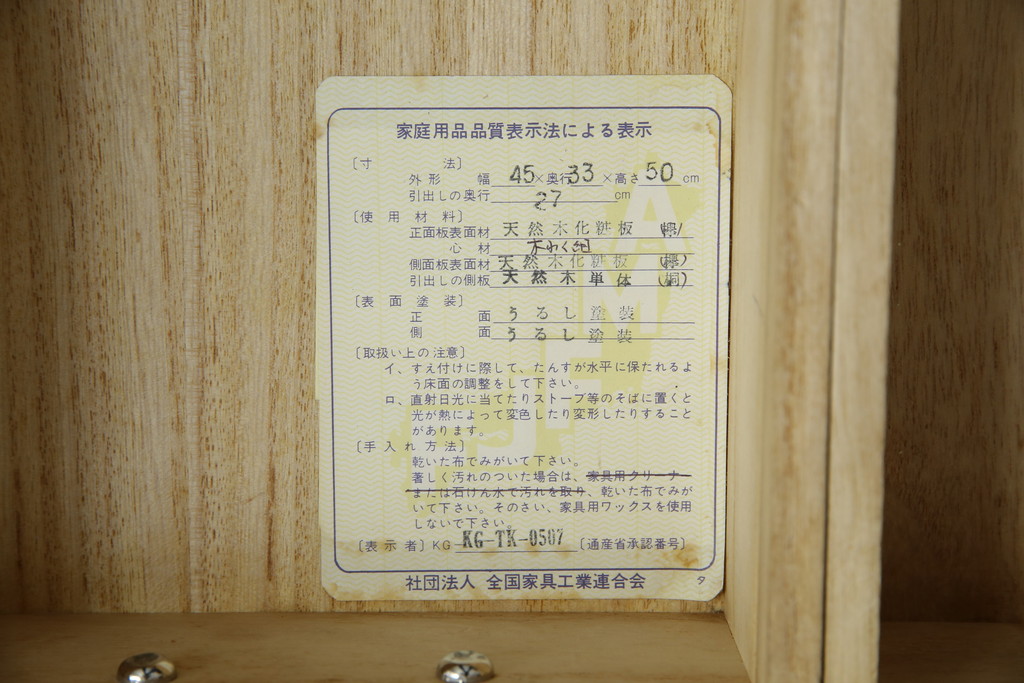 家庭用品品質表示法による表示
〔寸 法〕
外形 幅 45 ×奥行 33 ×高さ 50 cm
引出しの奥行 27 cm
〔使用材料〕
正面板表面材 天然木化粧板 (欅)
心材 木わく組
側面板表面材 天然木化粧板 (欅)
引出しの側板 天然木単体 (桐)
〔表面塗装〕
正 面 うるし塗装
側 面 うるし塗装
〔取扱い上の注意〕
イ、すえ付けに際して、たんすが水平に保たれるよ
う床面の調整をして下さい。
ロ、直射日光に当てたりストーブ等のそばに置くと
光が熱によって変色したり変形したりすること
があります。
〔手入れ方法〕
乾いた布でみがいて下さい。
著しく汚れのついた場合は、家具用クリーナー
または石けん水で汚れを取り、乾いた布でみが
いて下さい。そのさい、家具用ワックスを使用
しないで下さい。
〔表示者〕KG KG-TK-0507 〔通産省承認番号〕
社団法人 全国家具工業連合会 タ